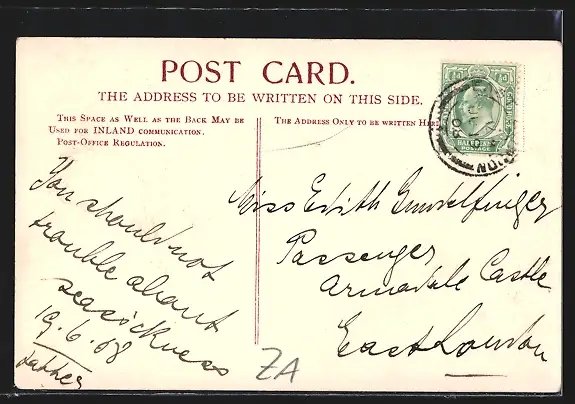 POST CARD.
THE ADDRESS TO BE WRITTEN ON THIS SIDE.
THIS SPACE AS WELL AS THE BACK MAY BE
USED FOR INLAND COMMUNICATION.
POST-OFFICE REGULATION.
THE ADDRESS ONLY TO BE WRITTEN HERE
HALFPENNY
POSTAGE
You should not
trouble about
seasickness
19.6.08
Father
Miss Edith Gundelfinger
Passenger
Armadale Castle
East London
ZA